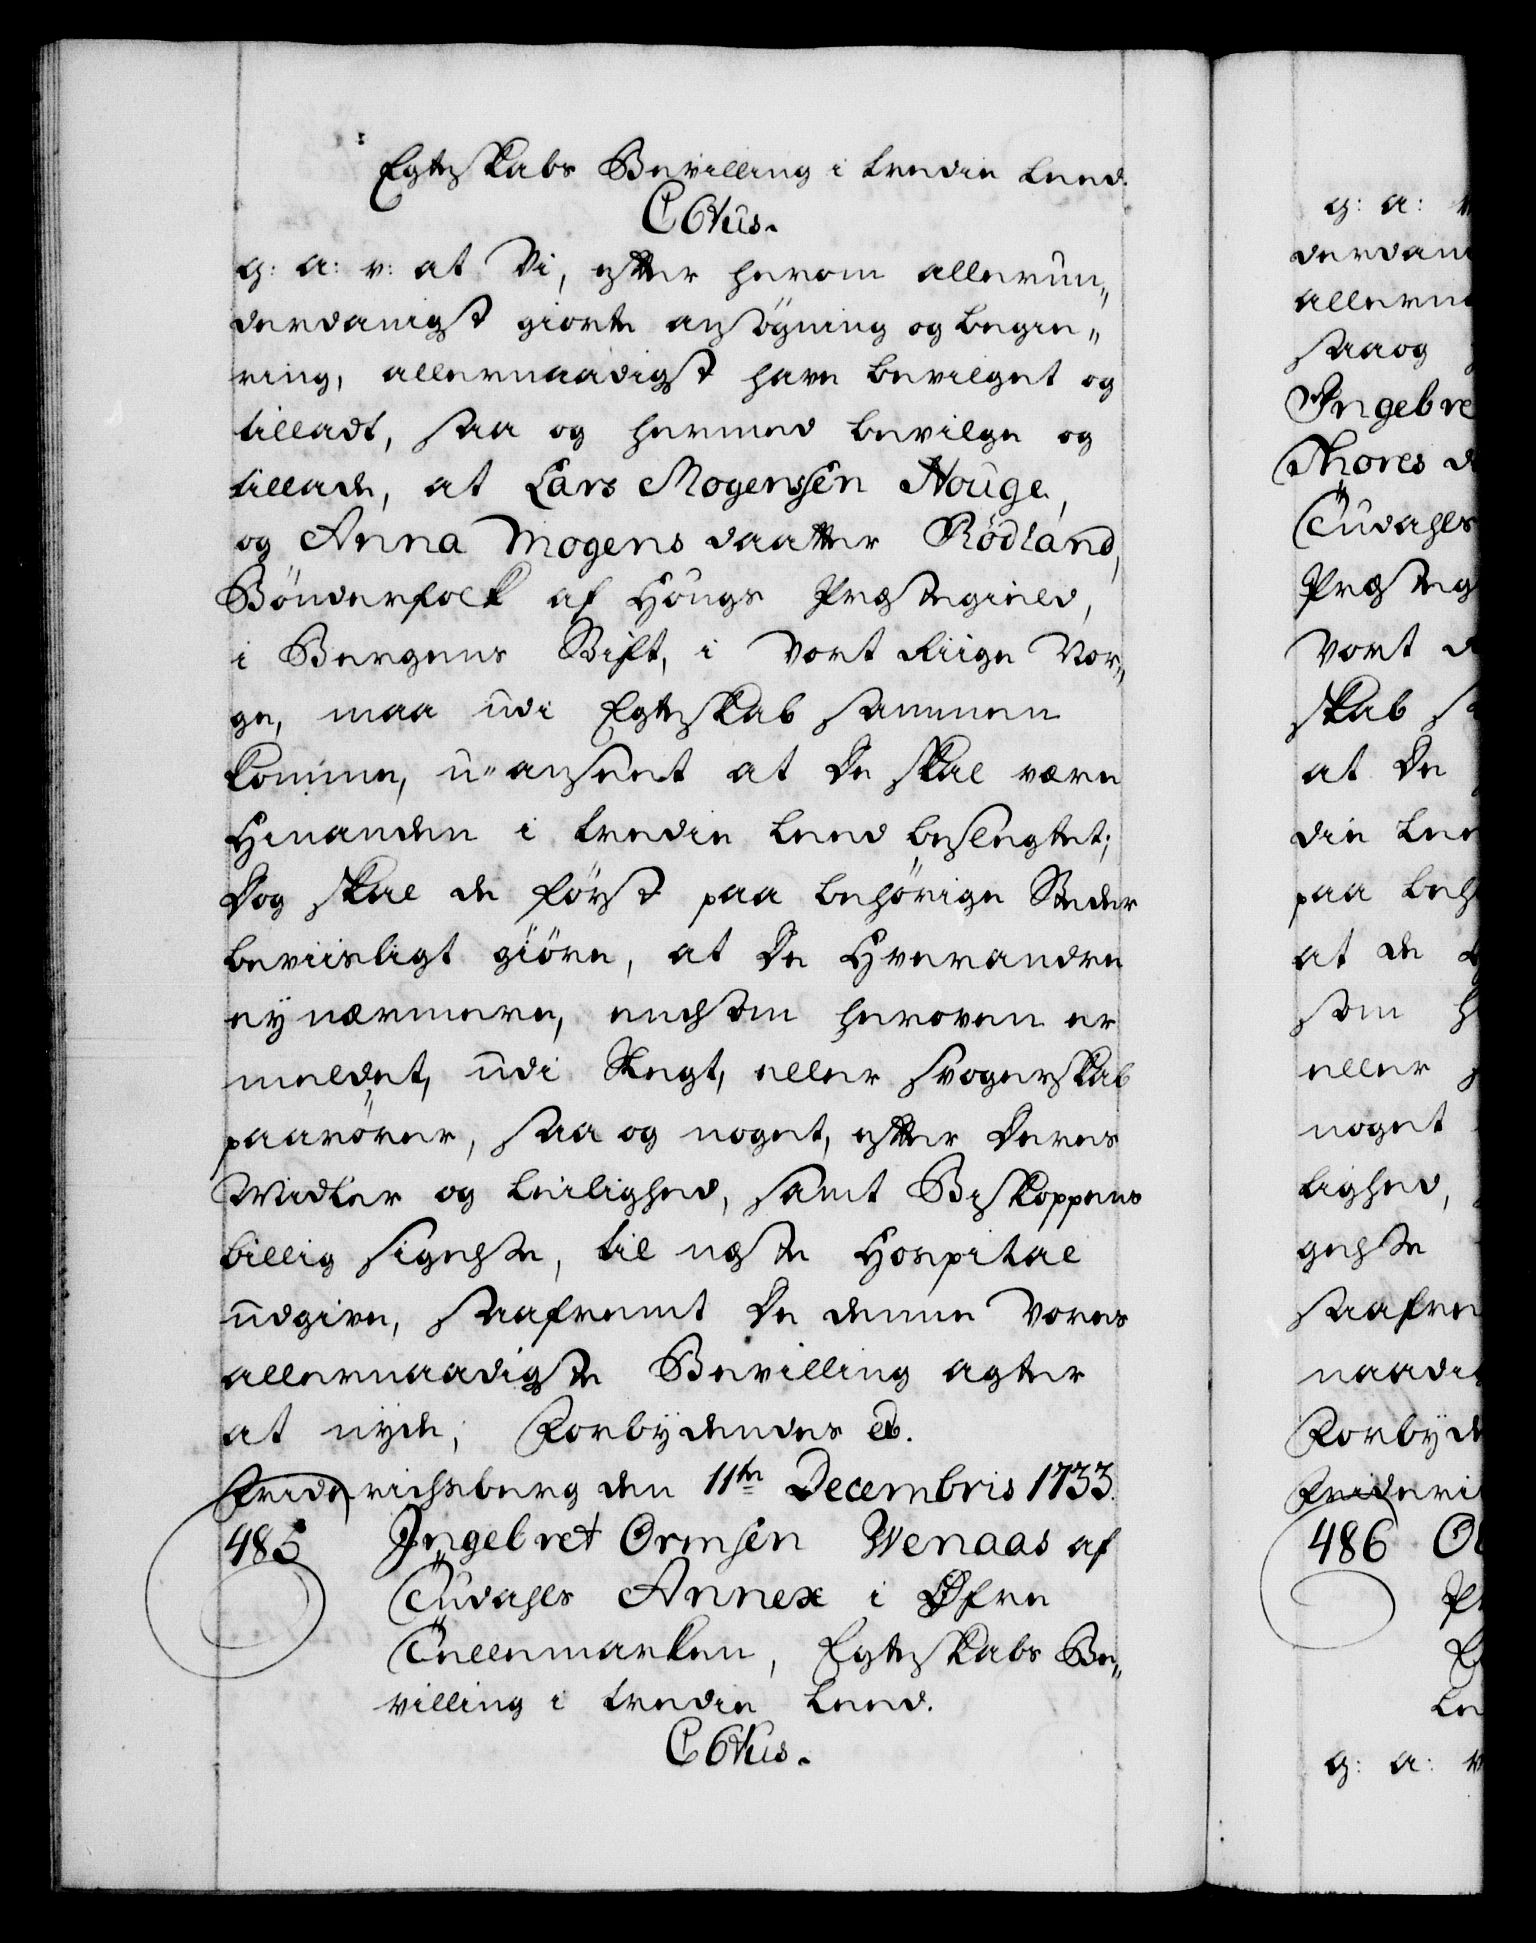 Egteskabs Bevilling i tredie Leed.
C6tus.
g: a: v: at Vi, efter herom allerun„
derdanigst giorte ansøgning og begie„
ring, allernaadigst have bevilget og
tilladt, saa og hermed bevilge og
tillade, at Lars Mogensen Houge,
og Anna Mogens daatter Rødland,
Bønderfolk af Hougs Præstegield,
i Bergens Stift, i Vort Riige Nor„
ge, maa udi Egteskab sammen
komme, u-anseet at De skal være
Hinanden i tredie Leed beslegtet;
Dog skal de først paa behørige Steder
beviisligt giøre, at De Hverandre
ey nærmere, endsom heroven er
meldet, udi Slegt, eller Svogerskab
paarører, saa og noget, efter Deres
Midler og Leilighed, samt Biskoppens
billig sigelse, til neste Hospital
udgive, saafremt De denne Vores
allernaadigste Bevilling agter
at nyde; Forbydendes etc.
Friderichsberg den 11te Decembris 1733.
485 Ingebret Ormsen Wenaas af
Tudahls Annex i Øfre
Tellemarken, Egteskabs Be„
villing i tredie Leed.
C6tus.
g: a: v
derdan
allerna
saaog
Ingebre
Thores d
Tudahls
Præsteg
Vort
skab
at De
die Lee
paa beh
at de
som
eller
noget
lighed,
gelse
saafre
naadig
Forbyde
Frideri
486
g: a: v